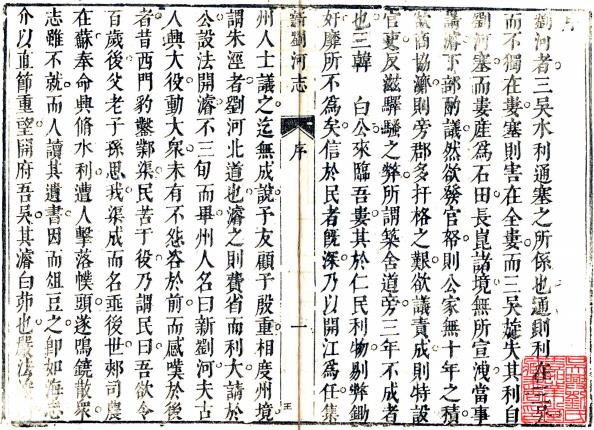 序
劉河者三吳水利通塞之所係也通則利在三吳
而不獨在婁塞則害在全婁而三吳旋失其利自
劉河塞而婁產爲石田長崑諸境無所宣洩當事
議濬下部酌議然欲發官帑則公家無十年之積
欲商協濟則旁郡多扞格之艱欲議責成則特設
官吏反滋驛騷之弊所謂築舍道旁三年不成者
也三韓 白公來臨吾婁其於仁民利物剔弊鋤
奸靡所不爲矣信於民者旣深乃以開江爲任集
新劉河志 序 一
州人士議之迄無成說予友顧子殷重相度州境
謂朱涇者劉河北道也濬之則費省而利大請於
公設法開濬不三旬而畢州人名曰新劉河夫古
人興大役動大衆未有不怨咨於前而感嘆於後
者昔西門豹鑿鄴渠民苦于役乃謂民曰吾欲令
百歲後父老子孫思我渠成而名垂後世郟司農
在蘇奉命興脩水利遭人擊落幞頭遂鳴鐃散衆
志雖不就而人讀其遺書因而俎豆之卽如海忠
介以直節重望開府吾吳其濬白茆也嚴法